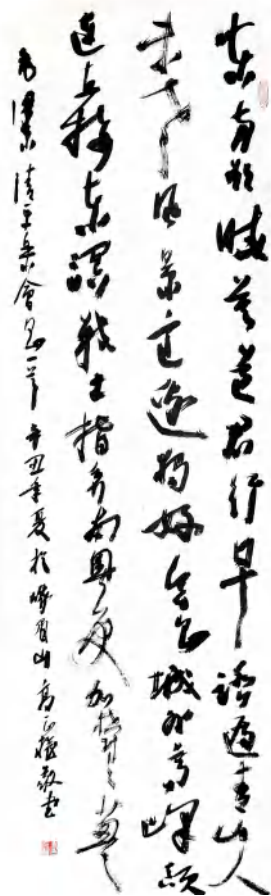 東方欲曉莫道君行早踏遍青山人
未老風景這邊獨好會昌城外高峰顛
連直接東溟戰士指看南粵更加鬱鬱葱葱
毛澤東清平樂會昌一首辛丑年夏於峨眉山高